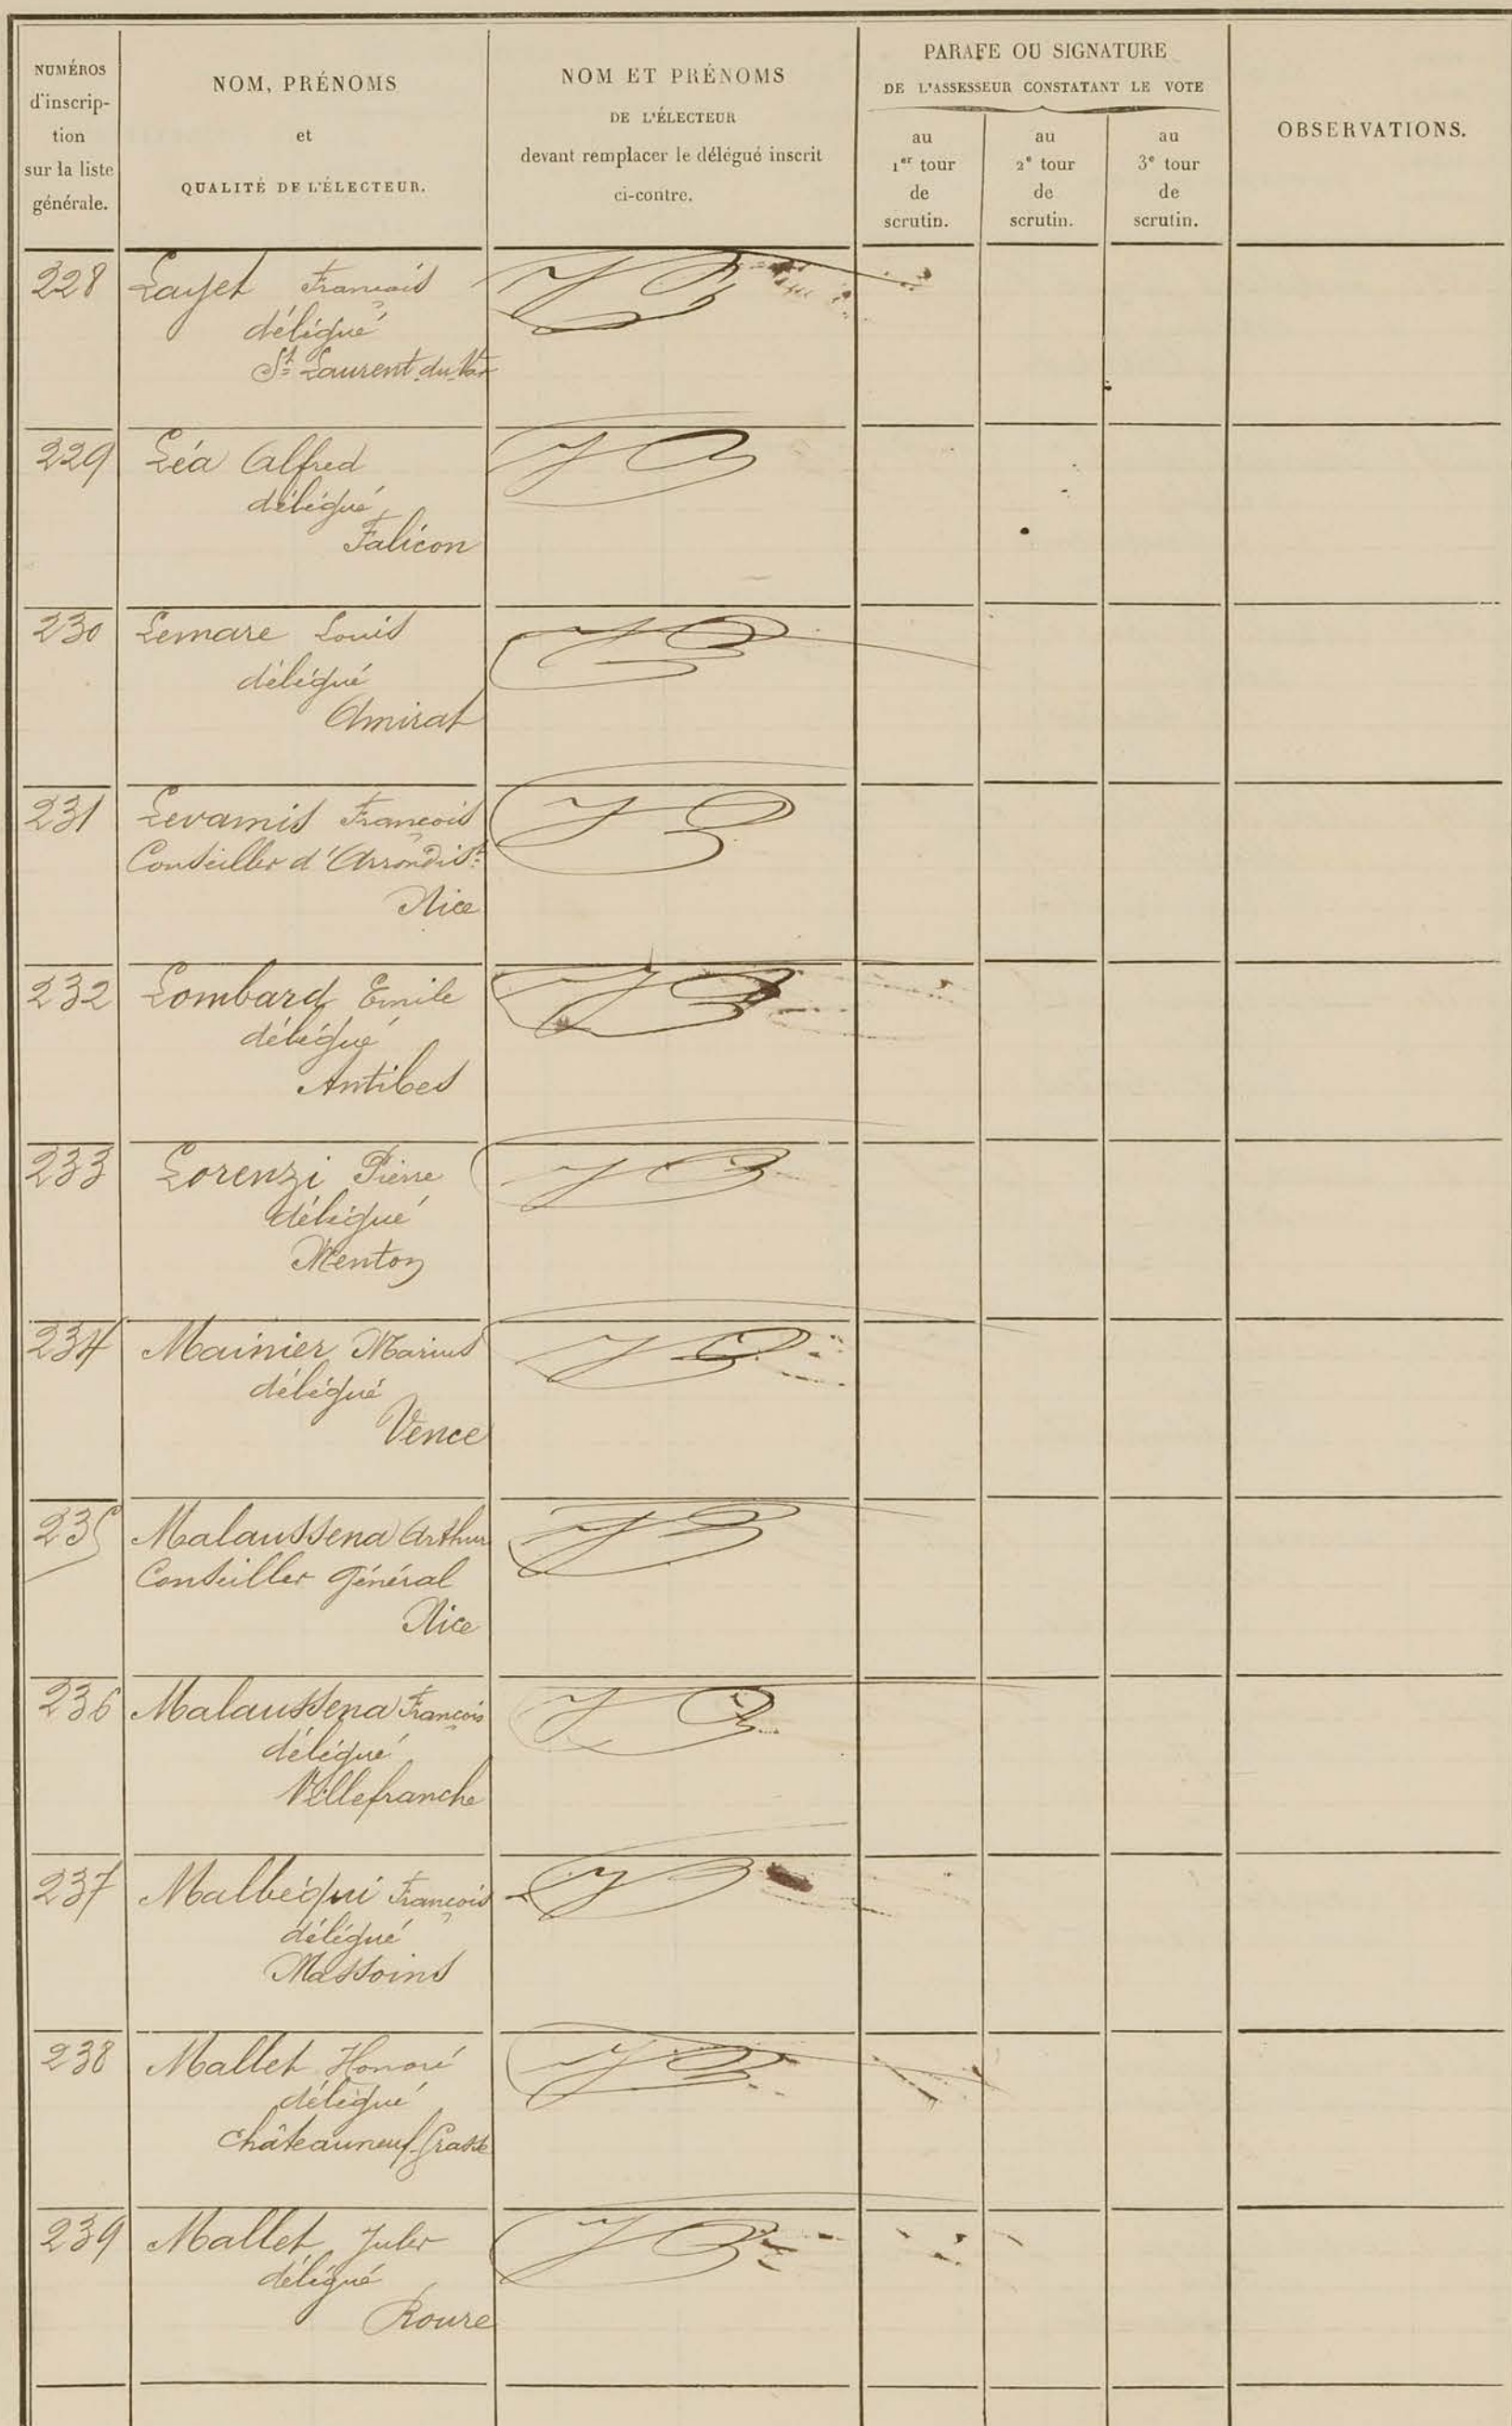 NUMÉROS
d'inscrip-
tion
sur la liste
générale.
NOM, PRÉNOMS
et
QUALITÉ DE L'ÉLECTEUR.
NOM ET PRÉNOMS
DE L'ÉLECTEUR
devant remplacer le délégué inscrit
ci-contre.
PARAFE OU SIGNATURE
DE L'ASSESSEUR CONSTATANT LE VOTE
au
1er tour
de
scrutin.
au
2e tour
de
scrutin.
au
3e tour
de
scrutin.
OBSERVATIONS.
228 Layet François
délégué
St Laurent du Var
229 Léa Alfred
délégué
Falicon
230 Lemare Louis
délégué
Amirat
231 Levamis François
Conseiller d'Arrondist
Nice
232 Lombard Emile
délégué
Antibes
233 Lorenzi Pierre
délégué
Menton
234 Mainier Marius
délégué
Vence
235 Malaussena Arthur
Conseiller Général
Nice
236 Malaussena François
délégué
Villefranche
237 Malbéqui François
délégué
Massoins
238 Mallet Honoré
délégué
Châteauneuf-Grasse
239 Mallet Jules
délégué
Roure